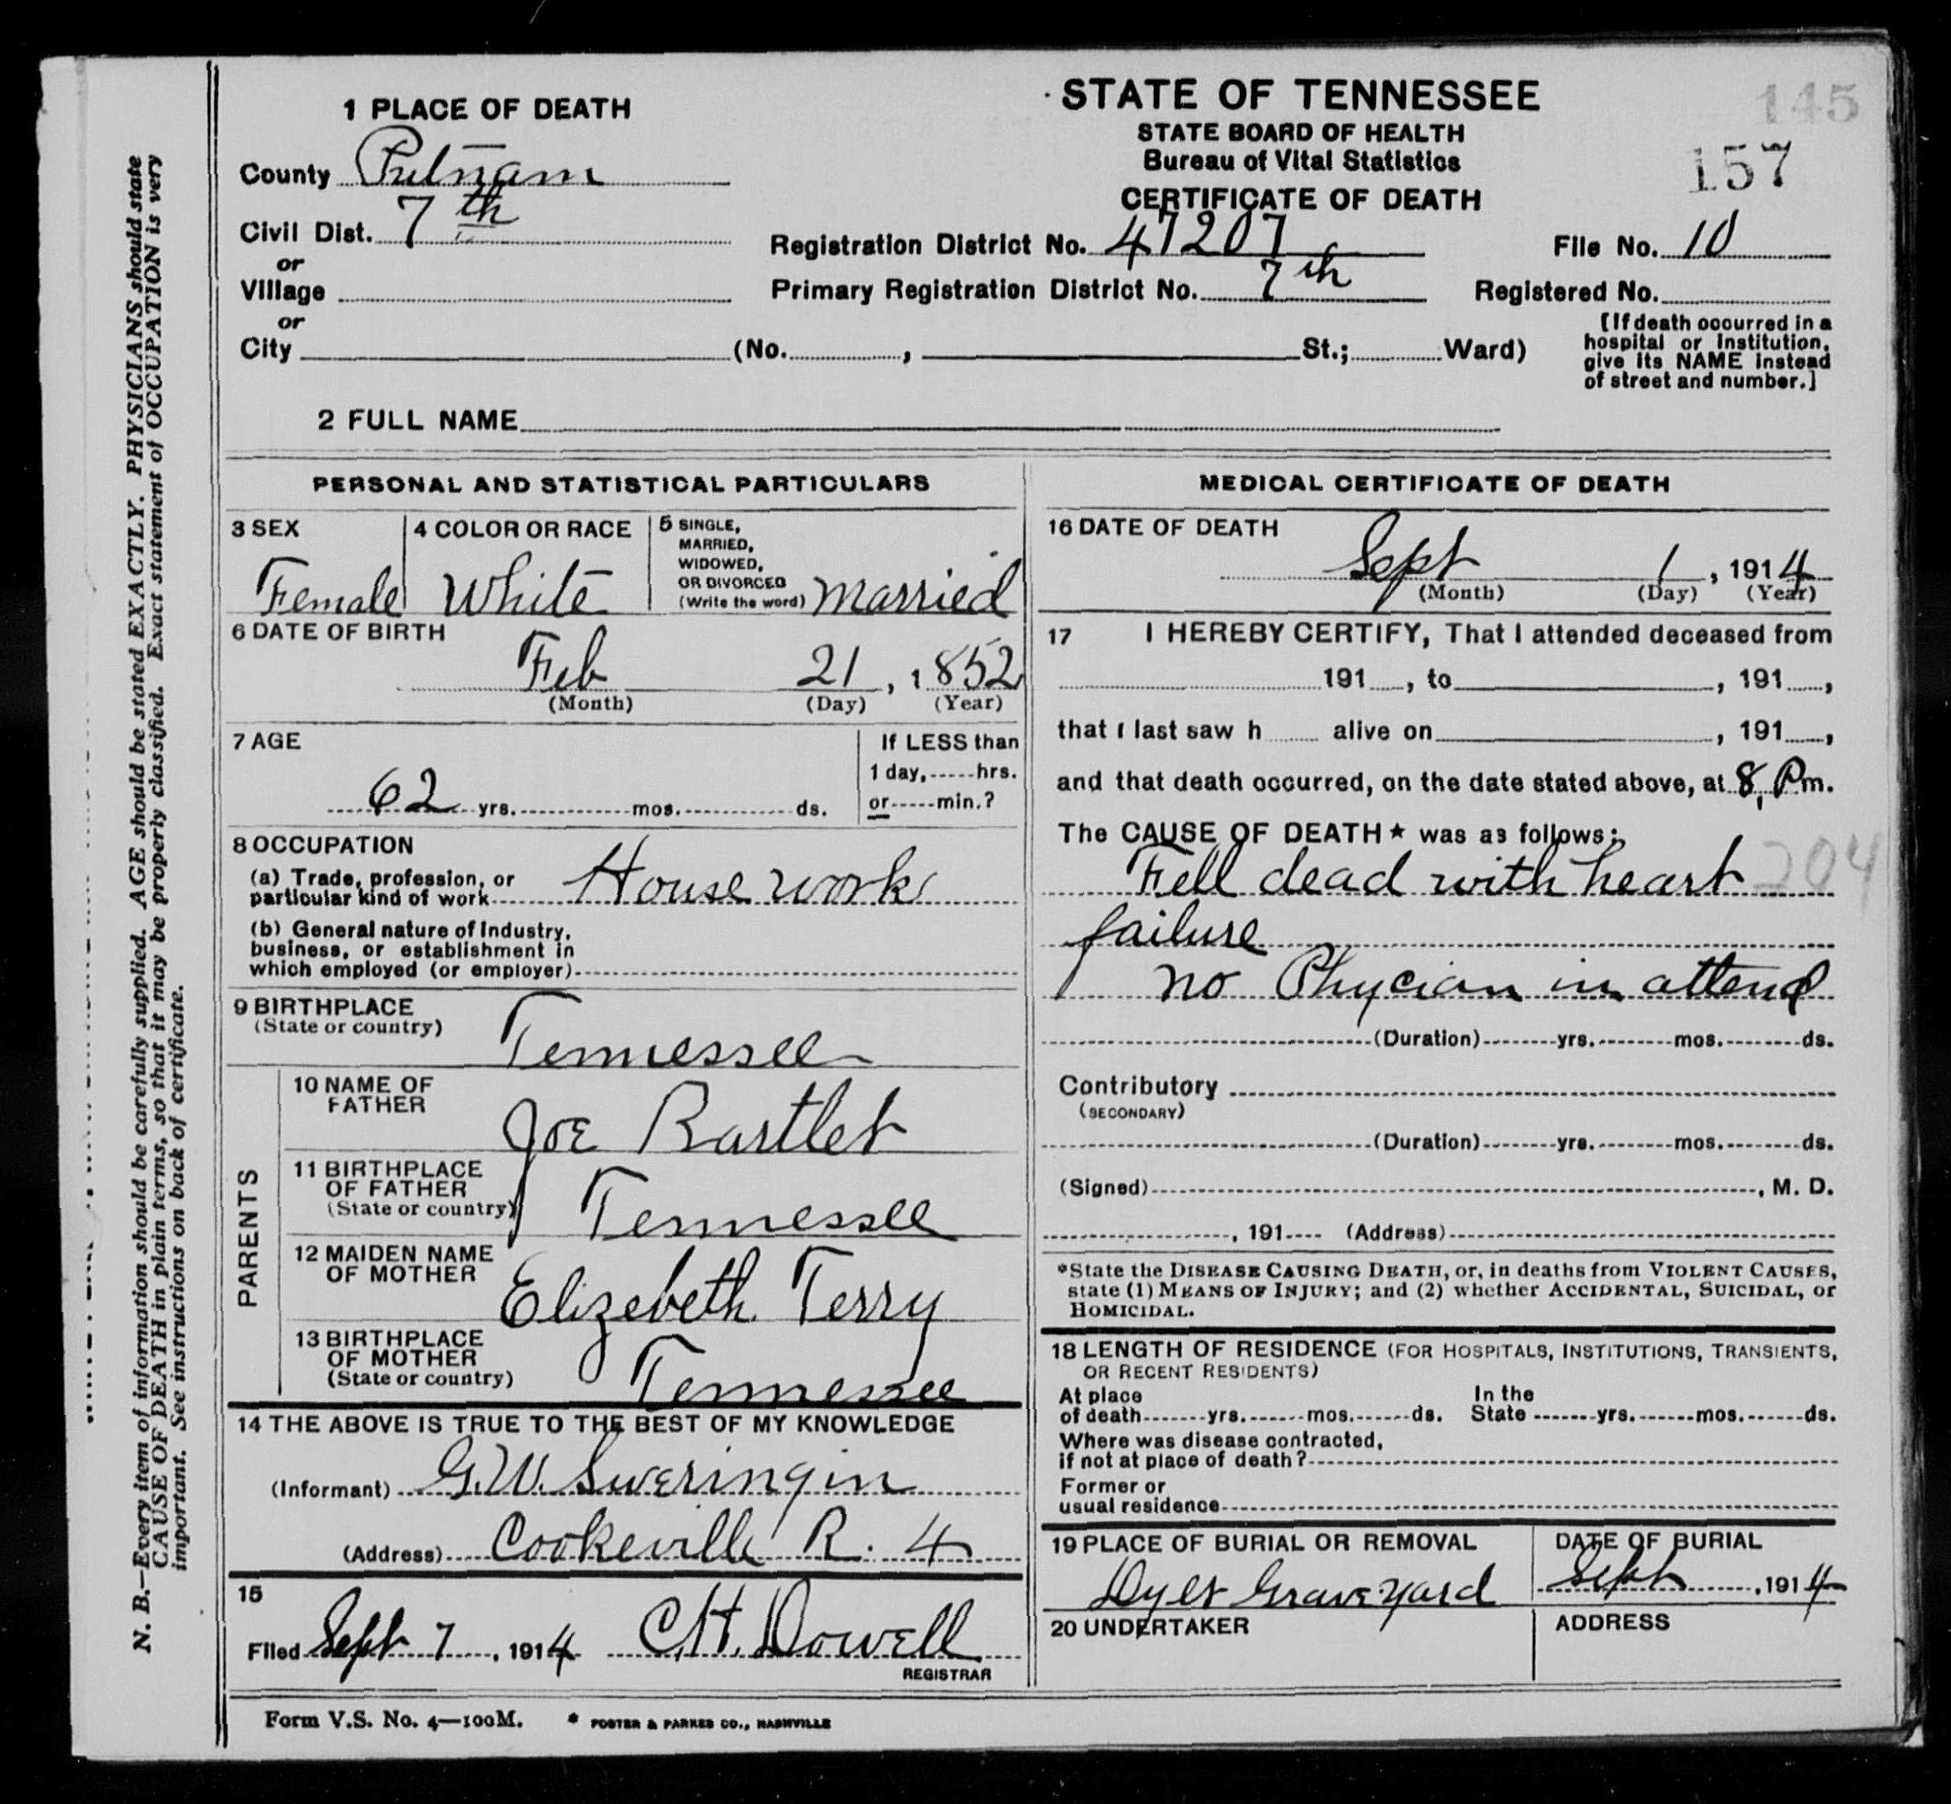 145
157
1 PLACE OF DEATH
County Putnam
Civil Dist. 7th
or
Village
or
City (No. , St.; Ward)
STATE OF TENNESSEE
STATE BOARD OF HEALTH
Bureau of Vital Statistics
CERTIFICATE OF DEATH
Registration District No. 47207 File No. 10
Primary Registration District No. 7th Registered No.
[If death occurred in a
hospital or institution,
give its NAME instead
of street and number.]
2 FULL NAME
PERSONAL AND STATISTICAL PARTICULARS
3 SEX
Female
4 COLOR OR RACE
White
5 SINGLE,
MARRIED,
WIDOWED,
OR DIVORCED
(Write the word) married
6 DATE OF BIRTH
Feb 21, 1852
(Month) (Day) (Year)
7 AGE
62 yrs. mos. ds.
If LESS than
1 day, hrs.
or min.?
8 OCCUPATION
(a) Trade, profession, or
particular kind of work House work
(b) General nature of industry,
business, or establishment in
which employed (or employer)
9 BIRTHPLACE
(State or country)
Tennessee
PARENTS
10 NAME OF
FATHER
Joe Bartlet
11 BIRTHPLACE
OF FATHER
(State or country)
Tennessee
12 MAIDEN NAME
OF MOTHER
Elizebeth Terry
13 BIRTHPLACE
OF MOTHER
(State or country)
Tennessee
14 THE ABOVE IS TRUE TO THE BEST OF MY KNOWLEDGE
(Informant) G.W. Sweringin
(Address) Cookeville R. 4
15
Filed Sept 7, 1914 C.H. Dowell
REGISTRAR
MEDICAL CERTIFICATE OF DEATH
16 DATE OF DEATH
Sept 1, 1914
(Month) (Day) (Year)
17 I HEREBY CERTIFY, That I attended deceased from
191 , to , 191 ,
that I last saw h alive on , 191 ,
and that death occurred, on the date stated above, at 8, Pm.
The CAUSE OF DEATH* was as follows:
Fell dead with heart 204
failure
no Phycian in attend
(Duration) yrs. mos. ds.
Contributory
(SECONDARY)
(Duration) yrs. mos. ds.
(Signed) , M. D.
, 191 (Address)
*State the DISEASE CAUSING DEATH, or, in deaths from VIOLENT CAUSES,
state (1) MEANS OF INJURY; and (2) whether ACCIDENTAL, SUICIDAL, or
HOMICIDAL.
18 LENGTH OF RESIDENCE (FOR HOSPITALS, INSTITUTIONS, TRANSIENTS,
OR RECENT RESIDENTS)
At place In the
of death yrs. mos. ds. State yrs. mos. ds.
Where was disease contracted,
if not at place of death?
Former or
usual residence
19 PLACE OF BURIAL OR REMOVAL
Dyer Graveyard
DATE OF BURIAL
Sept , 1914
20 UNDERTAKER
ADDRESS
Form V.S. No. 4—100M. * FOSTER & PARKES CO., NASHVILLE
N. B.—Every item of information should be carefully supplied. AGE should be stated EXACTLY. PHYSICIANS should state
CAUSE OF DEATH in plain terms, so that it may be properly classified. Exact statement of OCCUPATION is very
important. See instructions on back of certificate.